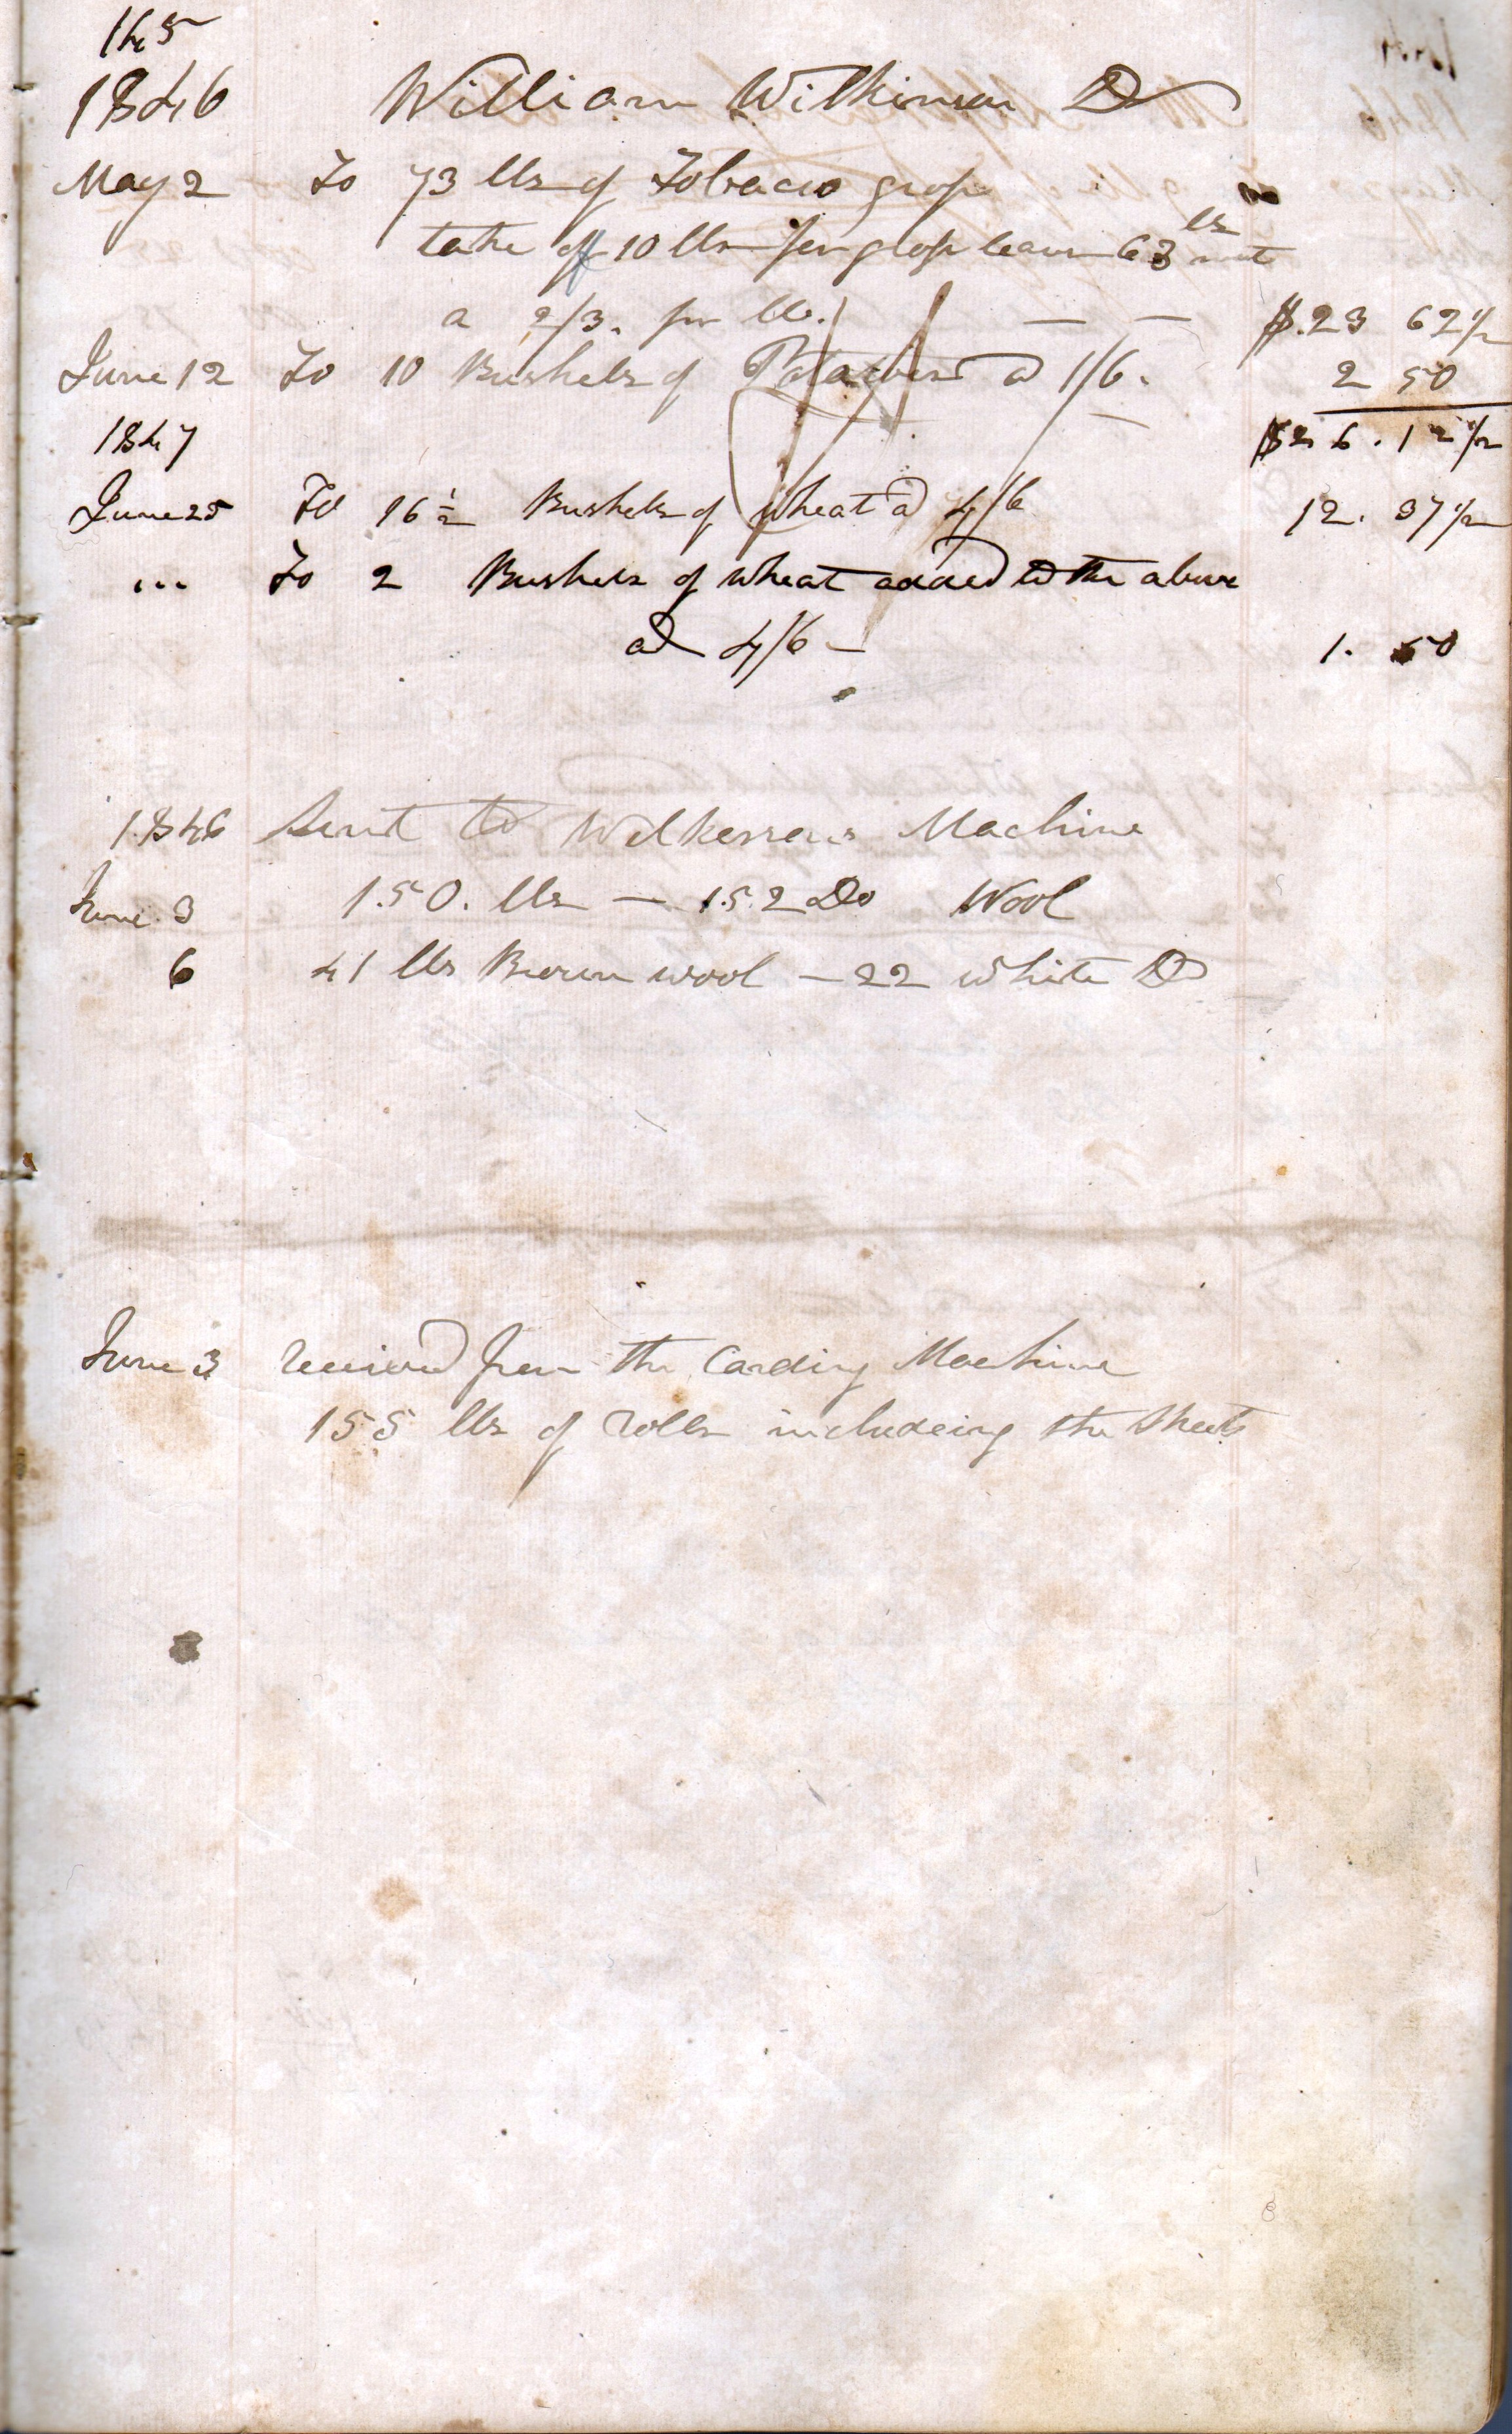 145
1846 William Wilkinson Dr
May 2 To 73 lbs of Tobacco grose
take off 10 lbs for grose leave 63 lbs nett
a 2/3. per lb. — — $.23 62 1/2
June 12 To 10 Bushels of Potatoes a 1/6. 2 50
1847 $26.12 1/2
June 25 To 16 1/2 Bushels of wheat a 4/6 12. 37 1/2
... To 2 Bushels of wheat added to the above
a 4/6 — 1. 50
1846 Sent to Wilkersons Machine
June 3 150. lbs — 152 Do Wool
6 41 lbs Brown wool — 22 white Do
June 3 received from the Carding Machine
155 lbs of rolls includeing the sheets